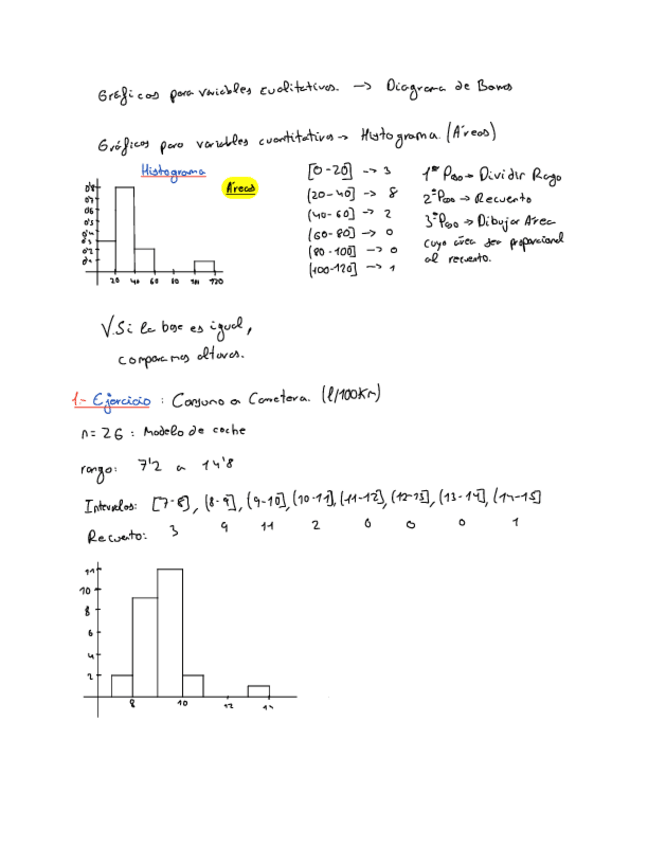 Gráficos para variables cualitativas. → Diagrama de Barras
Gráficos para variables cuantitativas → Histograma. (Áreas)
Histograma
Áreas
0'8
0'7
06
0'5
0'4
0'2
20 40 60 80 120
[0-20] → 3
(20-40] → 8
(40-60] → 2
(60-80] → 0
(80-100] → 0
(100-120] → 1
1er Paso → Dividir Rago
2º Paso → Recuento
3º Paso → Dibujar Area
cuyo área sea proporcional
al recuento.
V. Si la base es igual,
comparamos alturas.
1.- Ejercicio : Consumo a Carretera. (l/100Km)
n = 26 : Modelo de coche
rango: 7'2 a 14'8
Intervalos: [7-8], (8-9], (9-10], (10-11], (11-12], (12-13], (13-14], (14-15]
Recuento: 3 9 11 2 0 0 0 1
11
10
8
6
4
2
8 10 12 14